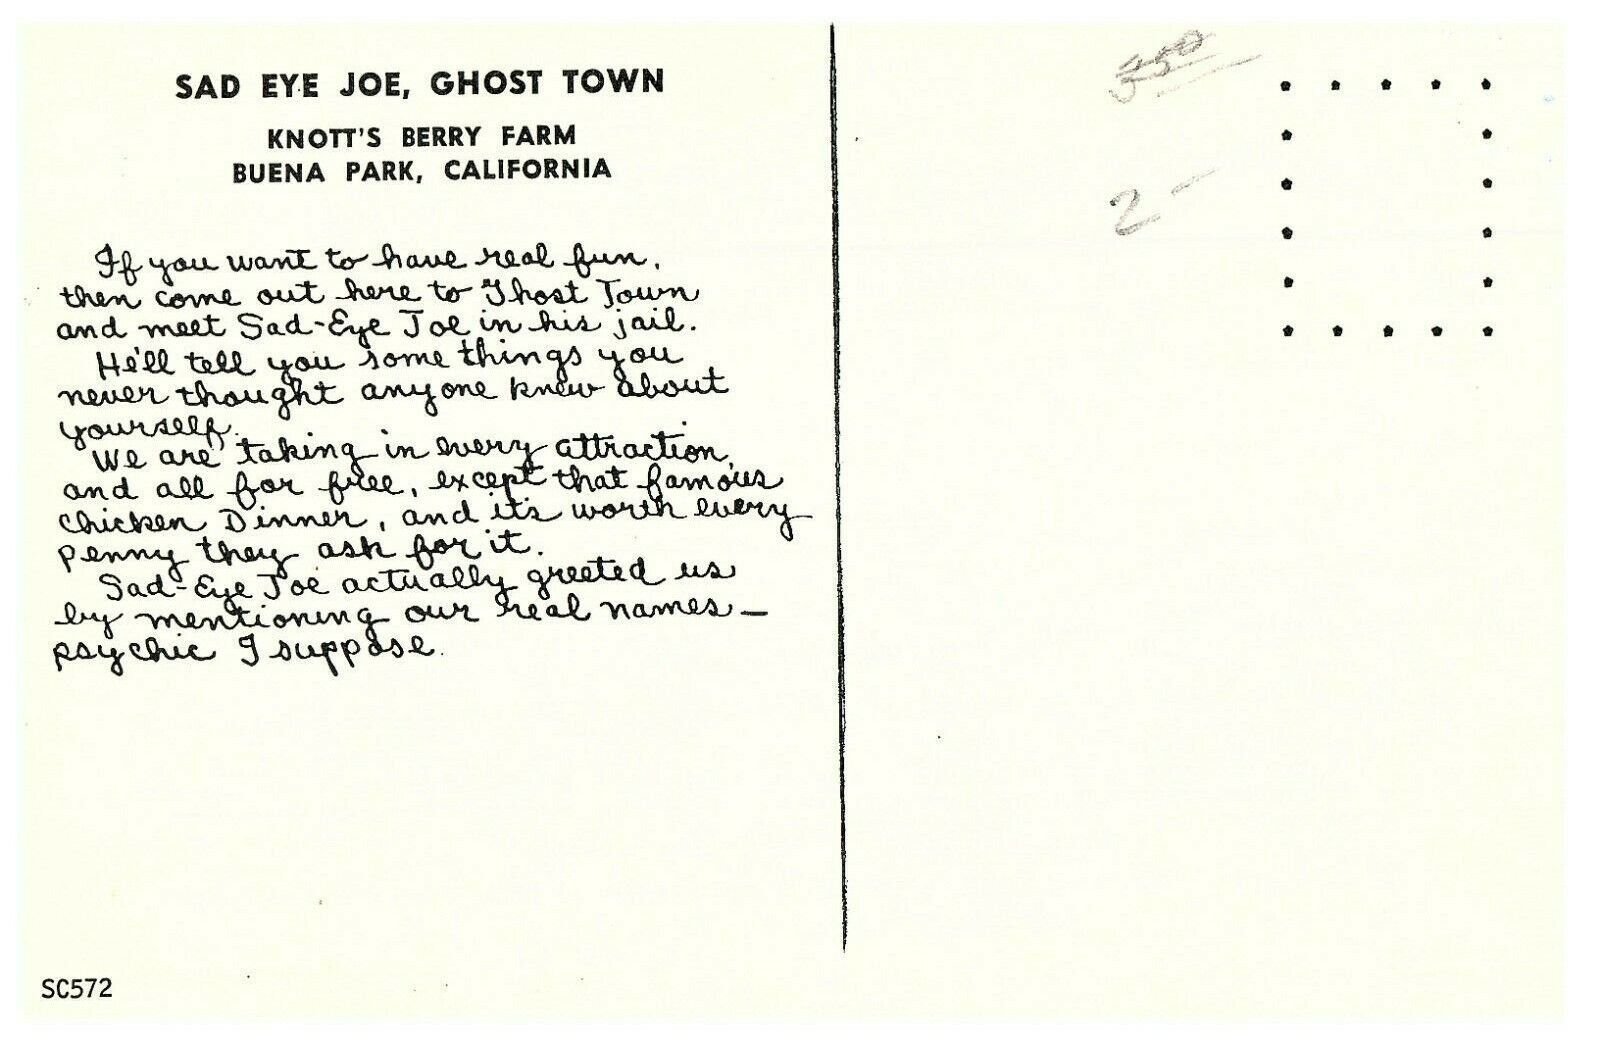 SAD EYE JOE, GHOST TOWN
KNOTT'S BERRY FARM
BUENA PARK, CALIFORNIA
If you want to have real fun,
then come out here to Ghost Town
and meet Sad-Eye Joe in his jail.
He'll tell you some things you
never thought anyone knew about
yourself.
We are taking in every attraction,
and all for free, except that famous
Chicken Dinner, and it's worth every
penny they ask for it.
Sad-Eye Joe actually greeted us
by mentioning our real names—
psychic I suppose.
SC572
2-